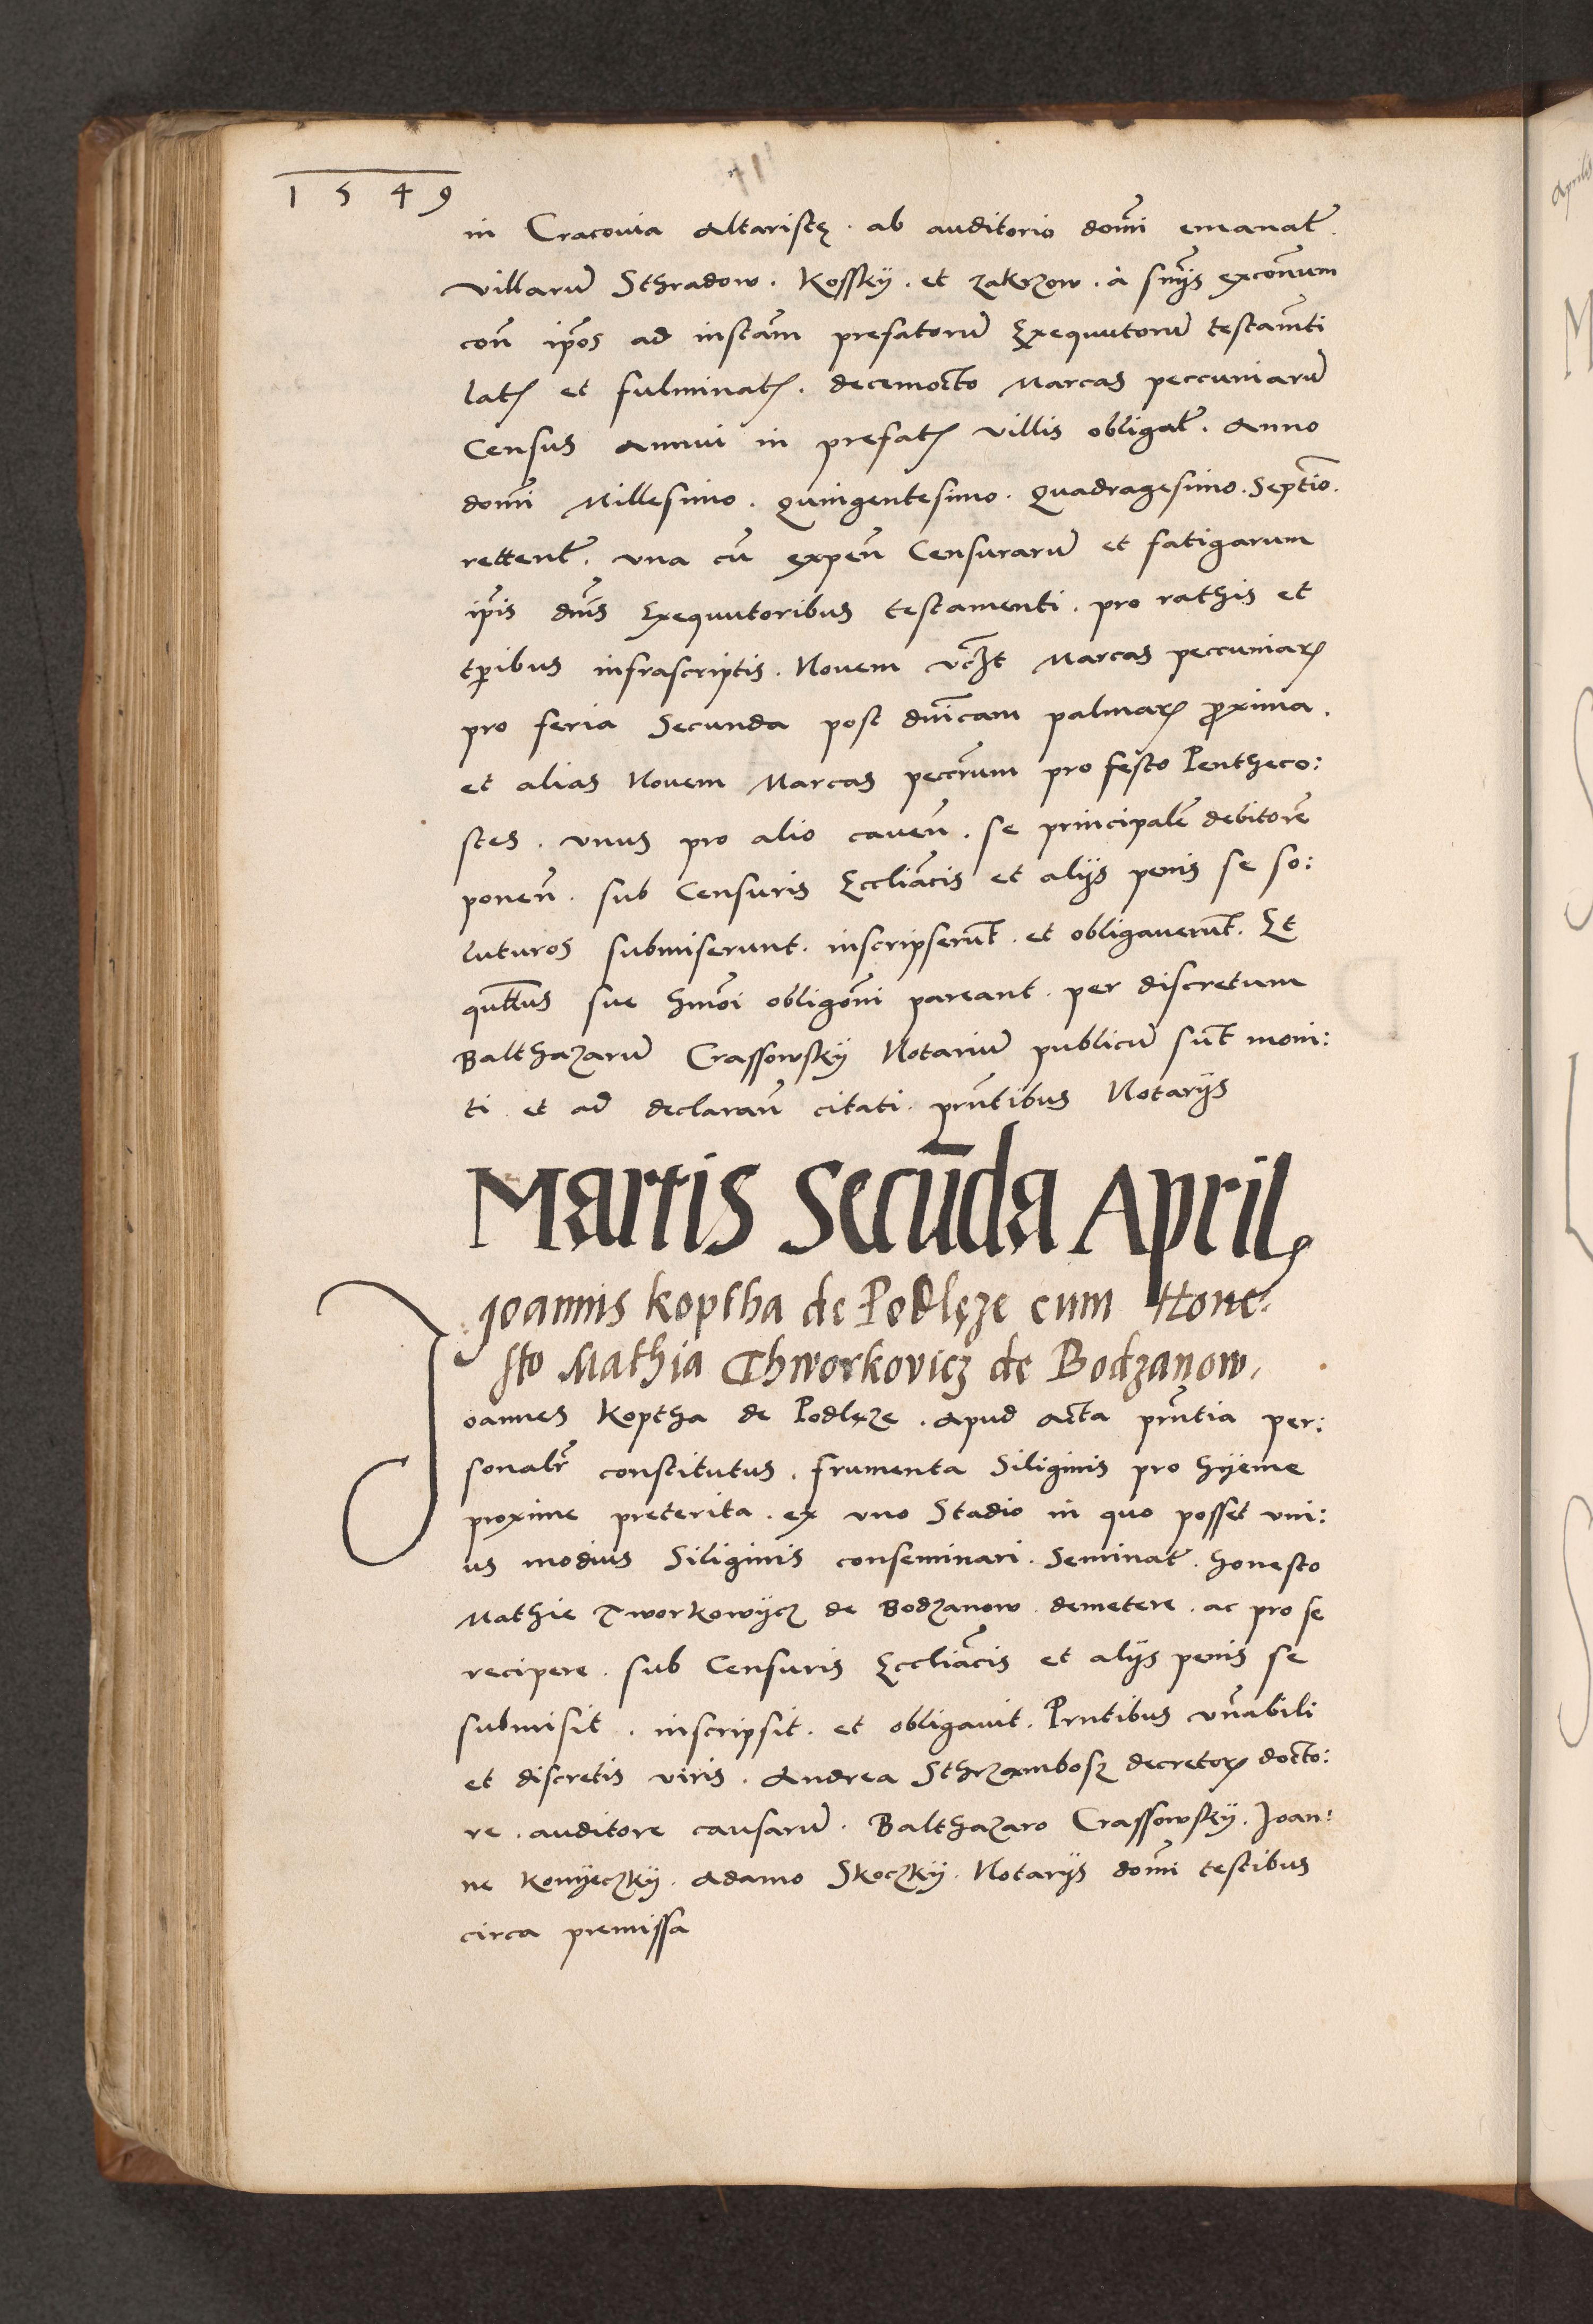 1549
in Cracouia Altaristę. ab auditorio domī emanat̃.
villarum̃ Sthradow. Kossky. et Zakrzow. à snĩjs excom̃um
com̃ ip̃os ad instam̃ prefatorum̃ Exequutorum̃ testam̃ti
latꝭ et fulminatꝭ. decemocto Marcas peccuniarum̃
Census annui in prefatꝭ villis obligat̃. Anno
dom̃i Millesimo. Quingentesimo. Quadragesimo. Septĩo.
rettent̃. vna cũ expen̄ Censurarum̃ et fatigarum
ip̃is dnĩs Exequutoribus testamenti. pro rathis et
tp̃ibus infrascriptis. Nouem vcꝫt Marcas peccuniarꝝ
pro feria Secunda post dnĩcam palmarꝝ p̃xima.
et alias Nouem Marcas pecc̃rum pro festo Pentheco:
stes. vnus pro alio cauen̄. se principalẽ debitorẽ
ponen̄. sub Censuris Eccliãcis et alijs penis se so:
luturos submiserunt. inscripserũt. et obligauerũt. Et
qutt̃us sue hmõi obligõni pareant. per discretum
Balthazarum̃ Crassowsky Notarium̃ publicum̃ sũt moni:
ti et ad declaran̄ citati. prñtibus Notarijs
Martis Secũda Aprilꝭ
Joannis koptha de Podlęze cum Hone-
sto Mathia Thworkovicz de Bodzanow.
Joannes Koptha de Podlęze. Apud Acta prñtia per:
sonalr̃ constitutus. frumenta Siliginis pro hyeme
proxime preterita. ex vno Stadio in quo posset vni:
us modius Siliginis conseminari. Seminat̃. honesto
Mathie Tworkowycz de Bodzanow. demetere. ac pro se
recipere. sub Censuris Eccliãcis et alijs penis se
submisit. inscripsit. et obligauit. Prntibus vñabili
et discretis viris. Andrea Sthrzambosz decretorꝝ docto:
re. auditore causarum̃. Balthazaro Crassowsky. Joan:
ne Konyeczky. Adamo Skoczky. Notarijs dom̃i testibus
circa premissa